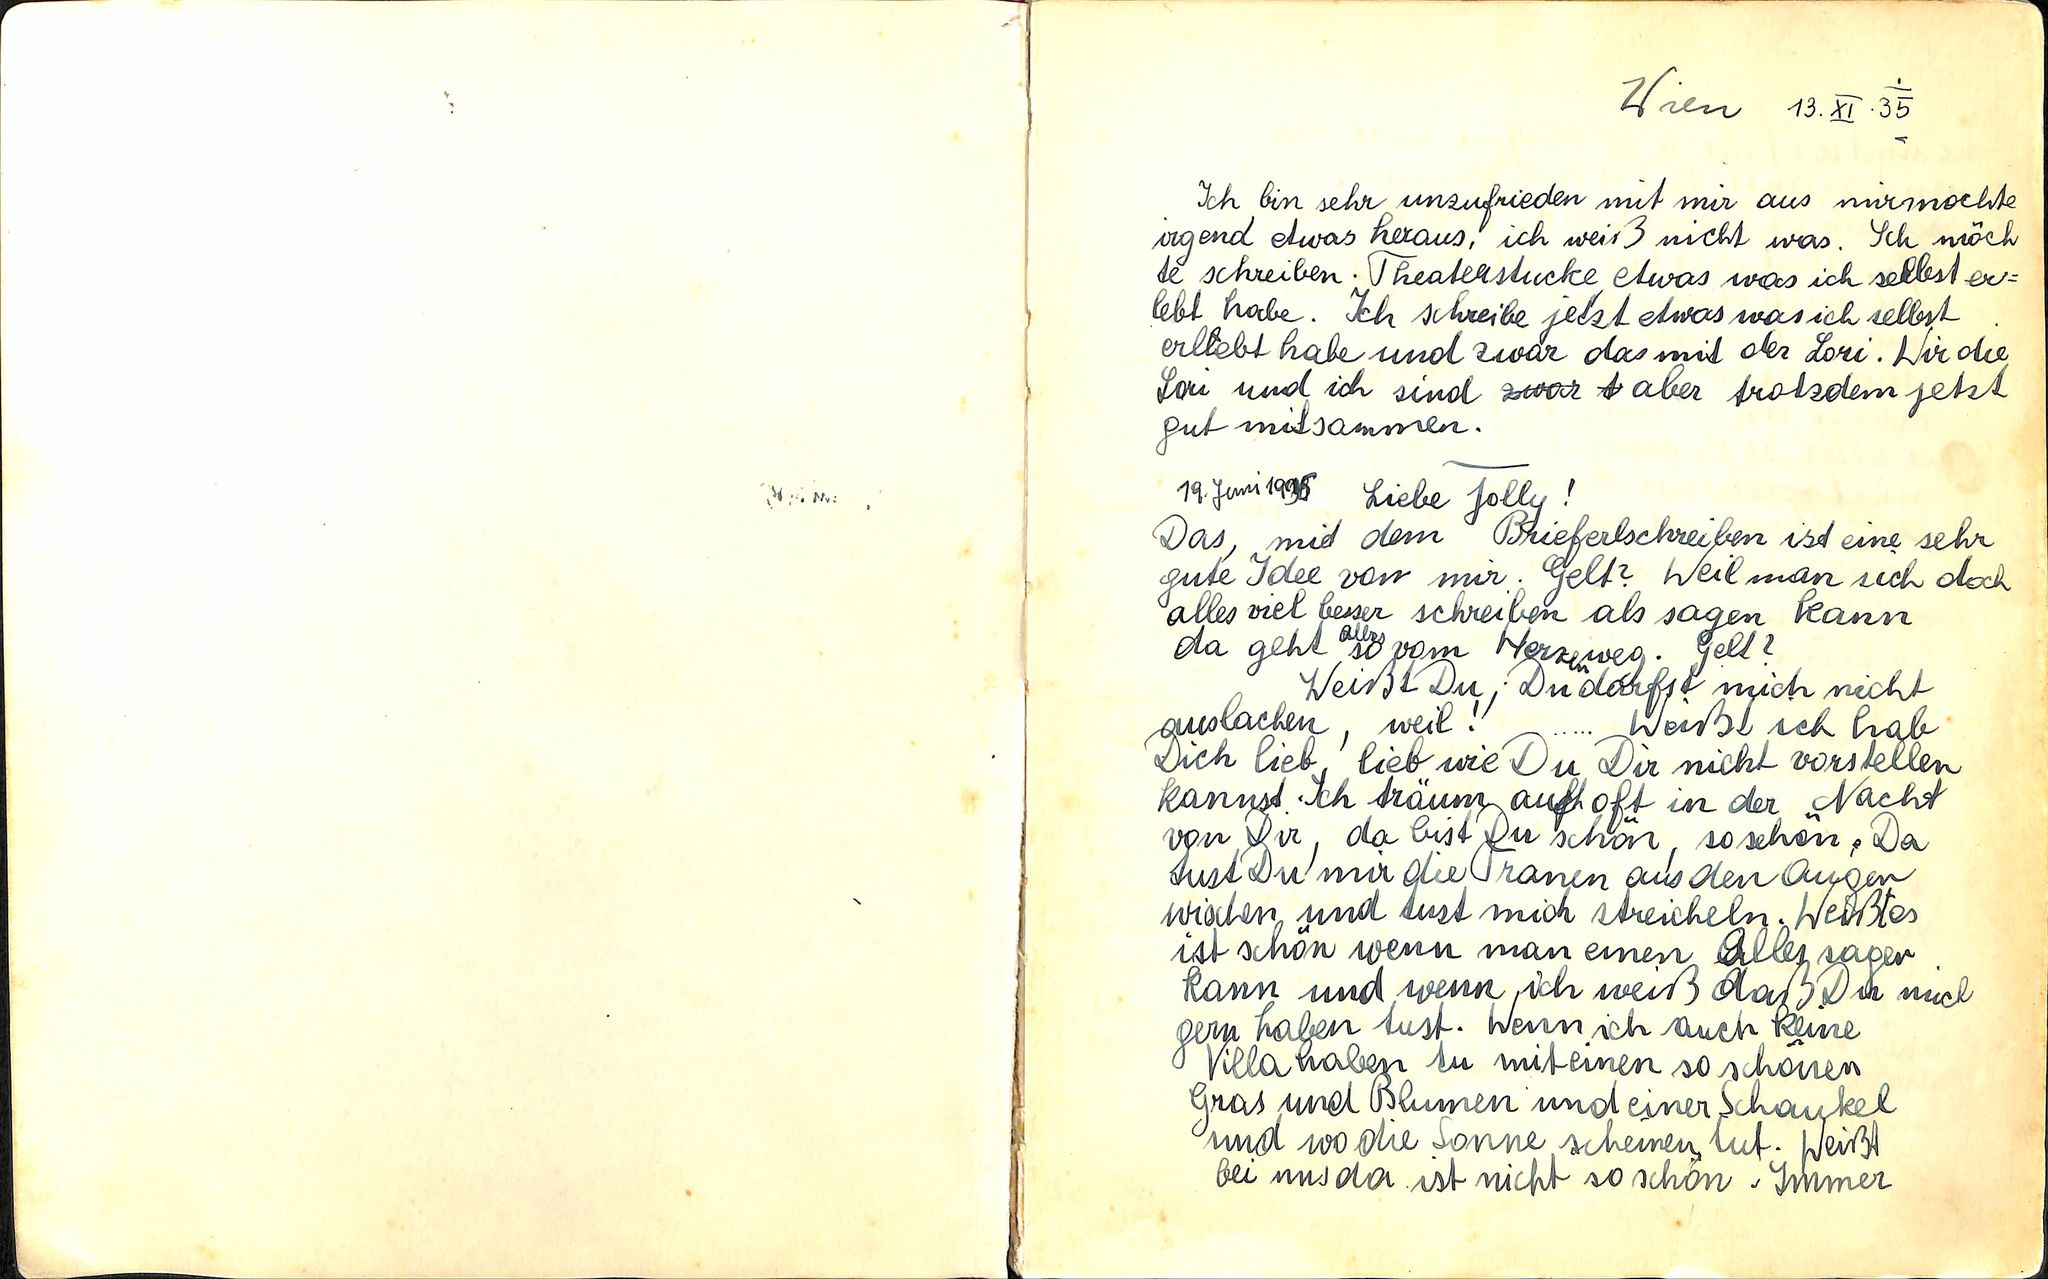 Wien 13. XI. 35
Ich bin sehr unzufrieden mit mir aus mirmochte
irgend etwas heraus, ich weiß nicht was. Ich möch
te schreiben. Theaterstucke, etwas was ich selbst er=
lebt habe. Ich schreibe jetzt etwas was ich selbst
erllebt habe und zwar das mit der Lori. Wir die
Lori und ich sind zwar t aber trotzdem jetzt
gut mitsammen.
19. Juni 1935 Liebe Jolly!
Das, mit dem Brieferlschreiben ist eine sehr
gute Idee von mir. Gelt? Weil man sich doch
alles viel besser schreiben als sagen kann
da geht alles so vom Herzen weg. Gelt?
Weißt Du, Du darfst mich nicht
auslachen, weil! ..... Weißt ich hab
Dich lieb, lieb wie Du Dir nicht vorstellen
kannst. Ich träum auch oft in der Nacht
von Dir, da bist Du schön, so schön. Da
tust Du mir die Tranen aus den Augen
wischen und tust mich streicheln. Weißt es
ist schön wenn man einen Alles sagen
kann und wenn ich weiß daß Du mich
gern haben tust. Wenn ich auch keine
Villa haben tu mit einen so schönen
Gras und Blumen und einer Schaukel
und wo die Sonne scheinen tut. Weißt
bei uns da ist nicht so schön. Immer